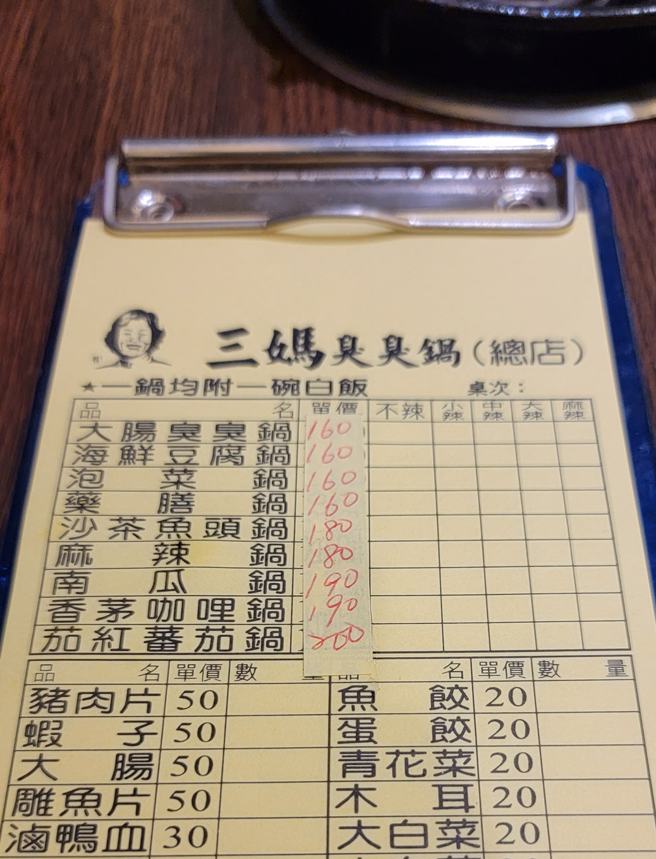 三媽臭臭鍋(總店)
★一鍋均附一碗白飯 桌次：
品名 單價 不辣 小辣 中辣 大辣 麻辣
大腸臭臭鍋 160
海鮮豆腐鍋 160
泡菜鍋 160
藥膳鍋 160
沙茶魚頭鍋 180
麻辣鍋 180
南瓜鍋 190
香茅咖哩鍋 190
茄紅蕃茄鍋 200
品名 單價 數量 品名 單價 數量
豬肉片 50 魚餃 20
蝦子 50 蛋餃 20
大腸 50 青花菜 20
雕魚片 50 木耳 20
滷鴨血 30 大白菜 20